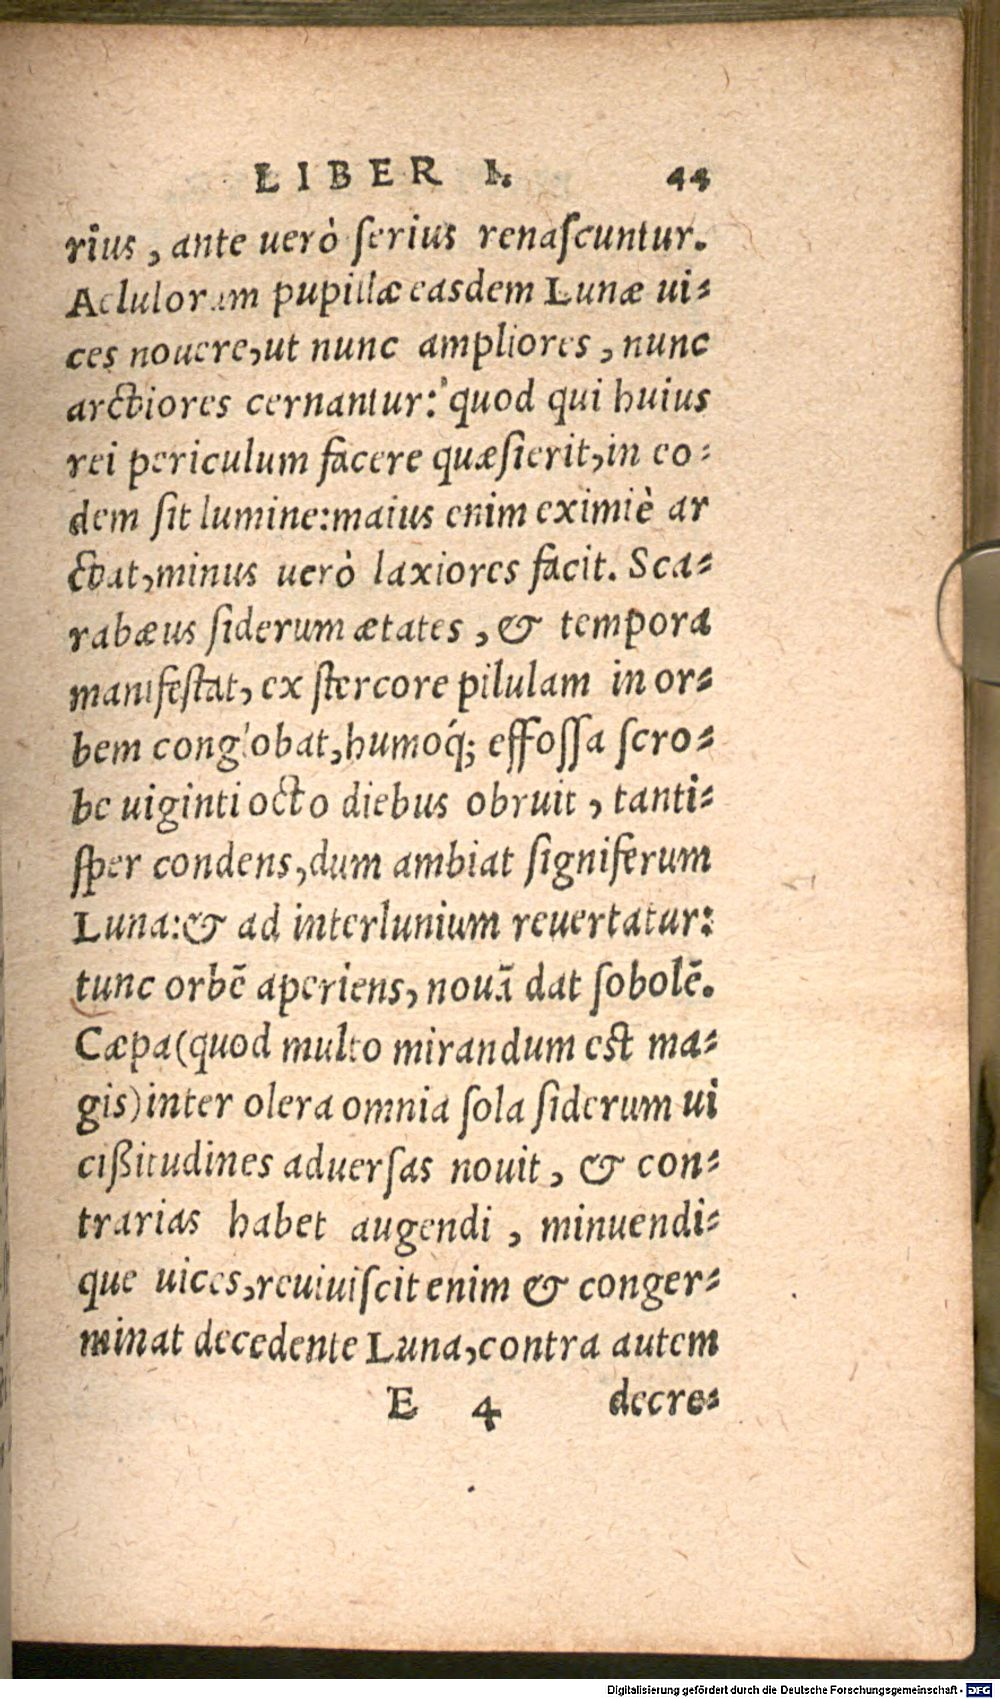 LIBER I. 44
rius, ante uerò ſerius renaſcuntur.
Aelulorum pupillæ easdem Lunæ ui-
ces nouere, ut nunc ampliores, nunc
arctiores cernantur: quod qui huius
rei periculum facere quæſierit, in eo-
dem ſit lumine: maius enim eximiè ar
ctat, minus uerò laxiores facit. Sca-
rabæus ſiderum ætates, & tempora
manifeſtat, ex ſtercore pilulam in or-
bem conglobat, humoq́; effoſſa ſcro-
be uiginti octo diebus obruit, tanti-
ſper condens, dum ambiat ſigniferum
Luna: & ad interlunium reuertatur:
tunc orbē aperiens, nouā dat ſobolē.
Cæpa (quod multo mirandum est ma-
gis) inter olera omnia ſola ſiderum ui
cißitudines aduerſas nouit, & con-
trarias habet augendi, minuendi-
que uices, reuiuiſcit enim & conger-
minat decedente Luna, contra autem
E 4 decre-
Digitalisierung gefördert durch die Deutsche Forschungsgemeinschaft - DFG